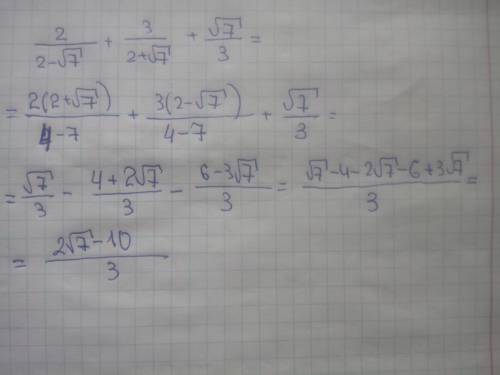 2/(2-√7) + 3/(2+√7) + √7/3 =
= 2(2+√7)/(4-7) + 3(2-√7)/(4-7) + √7/3 =
= √7/3 - (4+2√7)/3 - (6-3√7)/3 = (√7-4-2√7-6+3√7)/3 =
= (2√7-10)/3